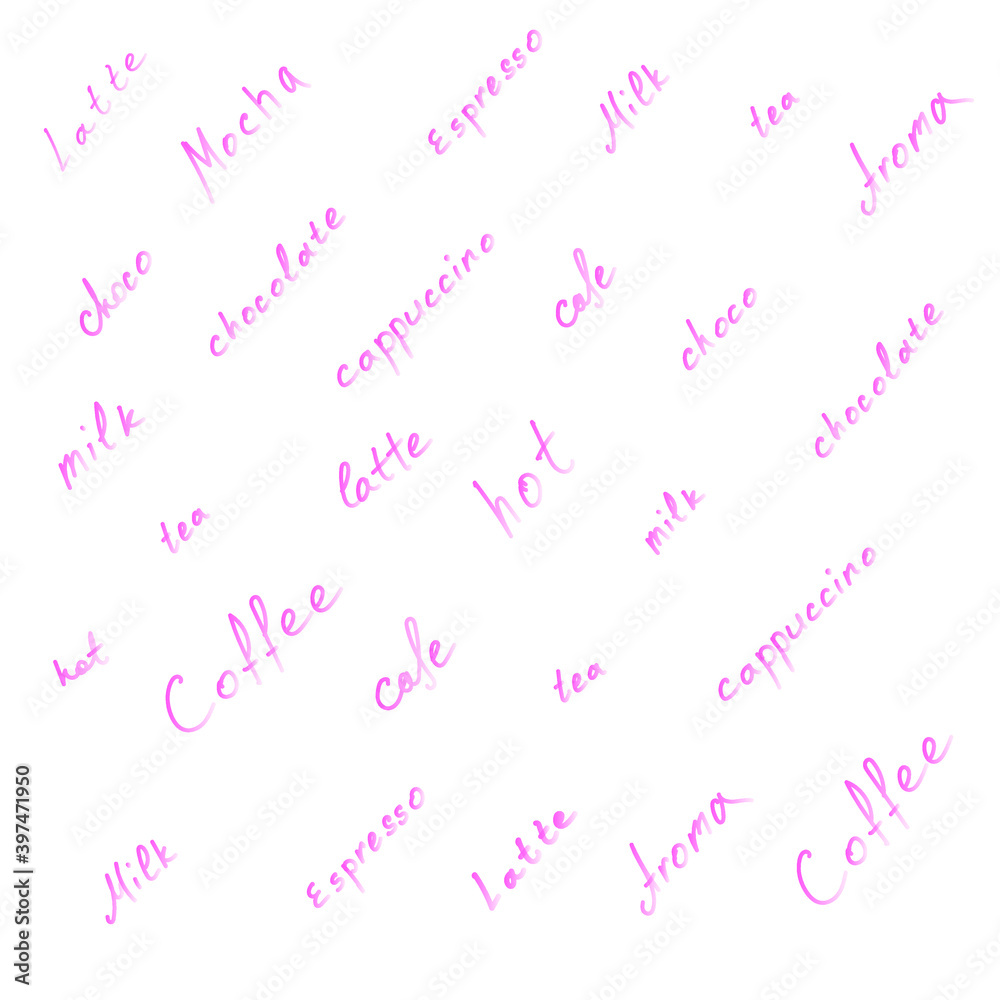 Latte
Mocha
Espresso
Milk
tea
Aroma
choco
chocolate
cappuccino
cafe
choco
chocolate
milk
latte
hot
tea
milk
cappuccino
hot
Coffee
cafe
tea
Milk
Espresso
Latte
Aroma
Coffee
Adobe Stock | #397471950